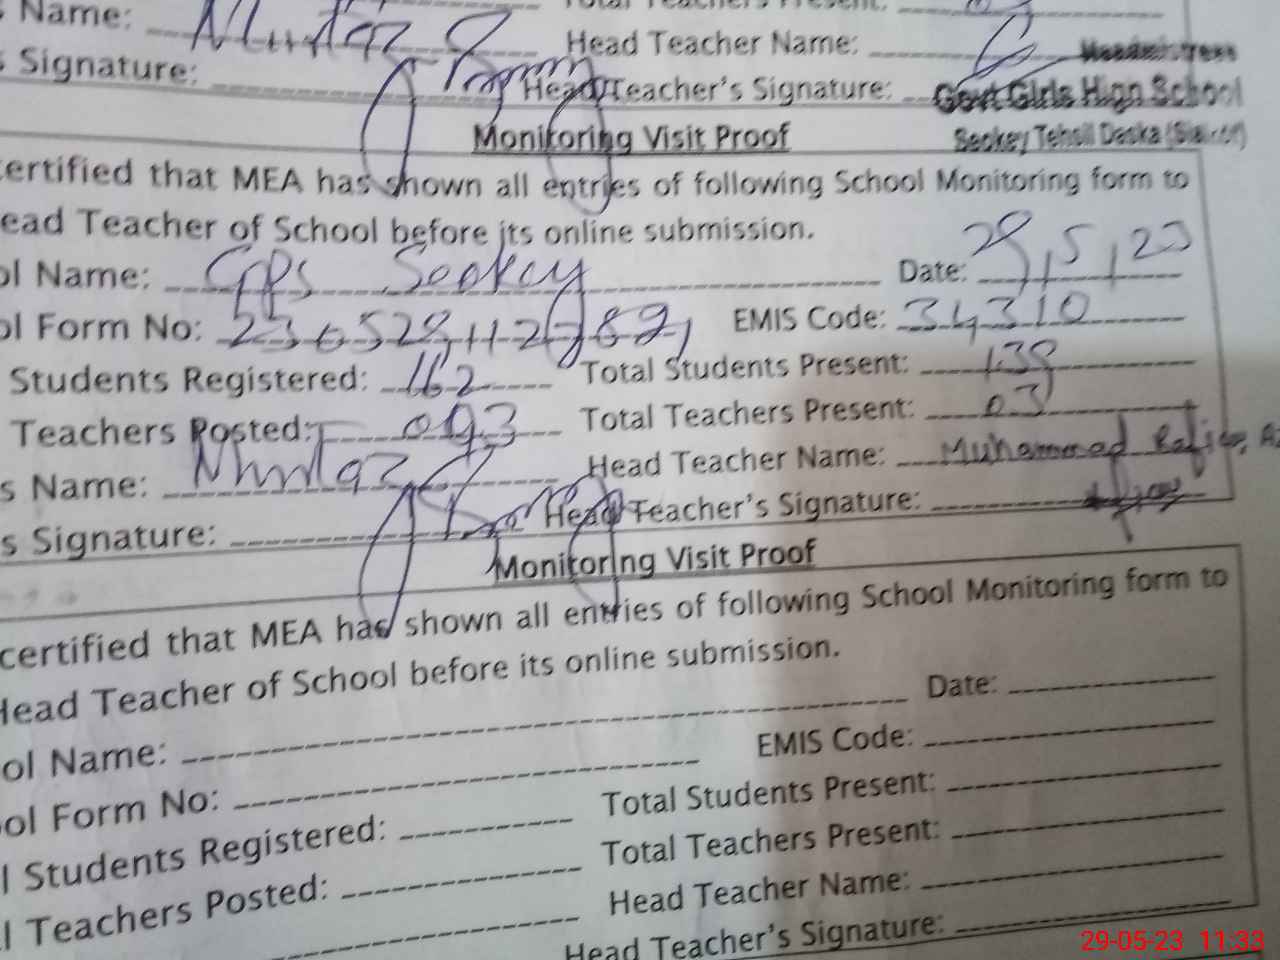 Name: Mumtaz Head Teacher Name:
Signature: Head Teacher's Signature: Headmistress
Govt Girls High School
Monitoring Visit Proof Seokey Tehsil Daska (Sialkot)
certified that MEA has shown all entries of following School Monitoring form to
ead Teacher of School before its online submission.
ol Name: GPS Seokey Date: 29,5,23
ol Form No: EMIS Code: 34310
Students Registered: 162 Total Students Present: 139
Teachers Posted: 03 Total Teachers Present: 03
s Name: Mumtaz Head Teacher Name: Muhammad
s Signature: Head Teacher's Signature:
Monitoring Visit Proof
certified that MEA has shown all entries of following School Monitoring form to
Head Teacher of School before its online submission.
ol Name: Date:
ol Form No: EMIS Code:
l Students Registered: Total Students Present:
l Teachers Posted: Total Teachers Present:
Head Teacher Name:
Head Teacher's Signature:
29-05-23 11:33